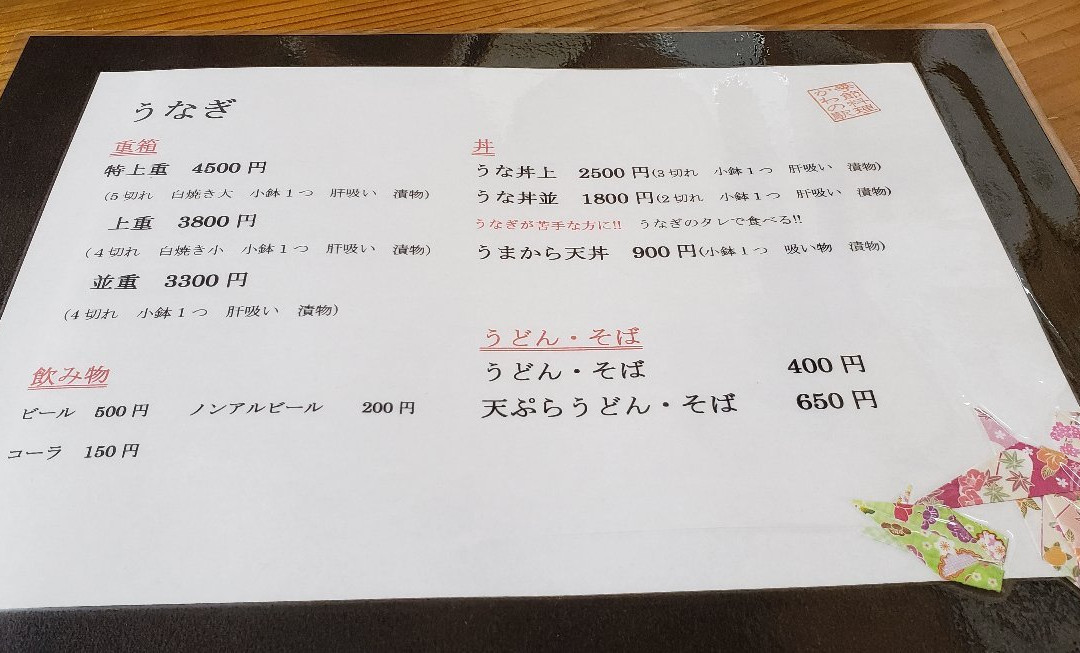 うなぎ
重箱
特上重 4500 円
(5 切れ 白焼き大 小鉢 1 つ 肝吸い 漬物)
上重 3800 円
(4 切れ 白焼き小 小鉢 1 つ 肝吸い 漬物)
並重 3300 円
(4 切れ 小鉢 1 つ 肝吸い 漬物)
飲み物
ビール 500 円 ノンアルビール 200 円
コーラ 150 円
丼
うな丼上 2500 円(3 切れ 小鉢 1 つ 肝吸い 漬物)
うな丼並 1800 円(2 切れ 小鉢 1 つ 肝吸い 漬物)
うなぎが苦手な方に!! うなぎのタレで食べる!!
うまから天丼 900 円(小鉢 1 つ 吸い物 漬物)
うどん・そば
うどん・そば 400 円
天ぷらうどん・そば 650 円
料理
かわの駅